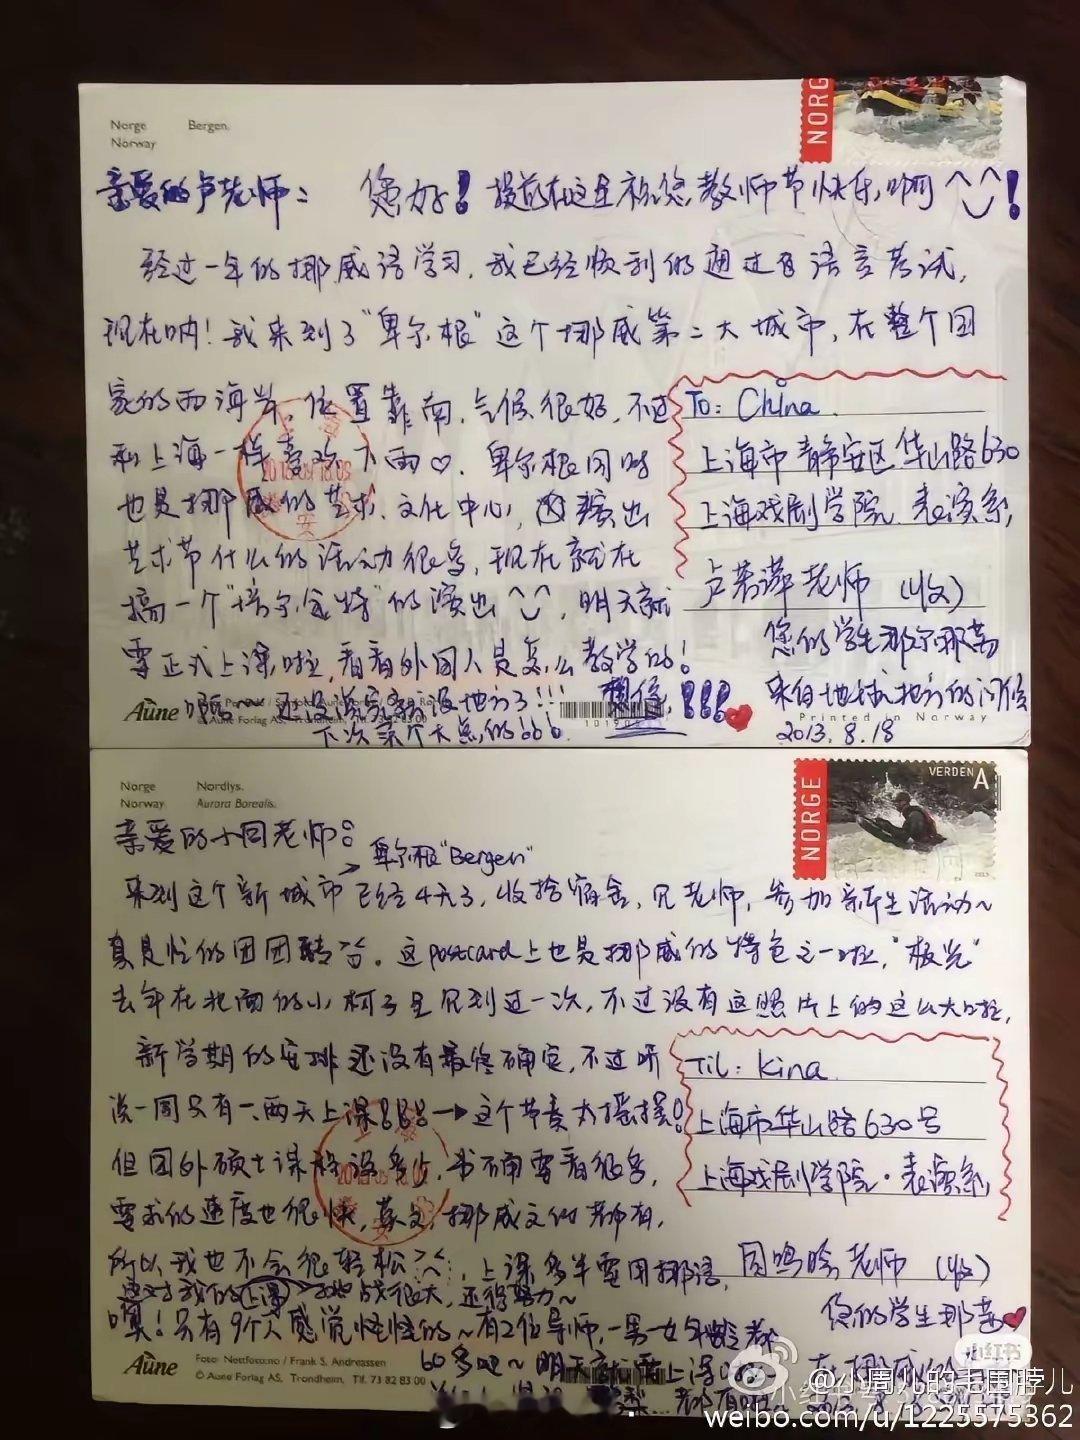 Norge Bergen.
Norway
NORG
亲爱的卢老师： 您好！提前在这里祝您教师节快乐，啊^‿^！
经过一年的挪威语学习，我已经顺利的通过语言考试，
现在呐！我来到了“卑尔根”这个挪威第二大城市，在整个国
家的西海岸，位置靠南，气候很好，不过
和上海一样喜欢下雨♡. 卑尔根同时
也是挪威的艺术、文化中心，演出
艺术节什么的活动很多，现在就在
搞一个“培尔·金特”的演出^‿^，明天就
要正式上课啦，看看外国人是怎么教学的！
还没写 没地方了!!! 想你!!!
下次买个大点的
To: China
上海市静安区华山路630
上海戏剧学院 表演系
卢若萍老师（收）
您的学生那尔那茜
来自地球北方的问候
2013.8.18
Aune
© Aune Forlag AS, Trondheim,
Printed in Norway
Norge Nordlys.
Norway Aurora Borealis.
NORGE
VERDEN A
亲爱的小周老师：
卑尔根"Bergen"
来到这个新城市已经4天了，收拾宿舍，见老师，参加新生活动~
真是忙的团团转. 这postcard上也是挪威的特色之一啦，“极光”
去年在北面的小村子里见到过一次，不过没有这照片上的这么大啦，
新学期的安排还没有最终确定，不过听
说一周只有一、两天上课!!!→这个节奏太摇摆！
但国外硕士课程没多少，书确需要看很多，
要求的速度也很快，英文，挪威文的都有，
所以我也不会很轻松，上课多半要用挪语，
这对我的上课挑战很大，还得努力~
噢！只有9个人感觉怪怪的~有2位导师，一男一女年龄都
60多吧~明天就要上课
Til: Kina
上海市华山路630号
上海戏剧学院·表演系
周鸣晗老师（收）
您的学生那茜
在挪威
2013.8.
Aune
Foto: Nottfoto.no / Frank S. Andreassen
© Aune Forlag AS, Trondheim, Tlf. 73 82 83 00
小红书
@小周儿的毛围脖儿
weibo.com/u/1225575362